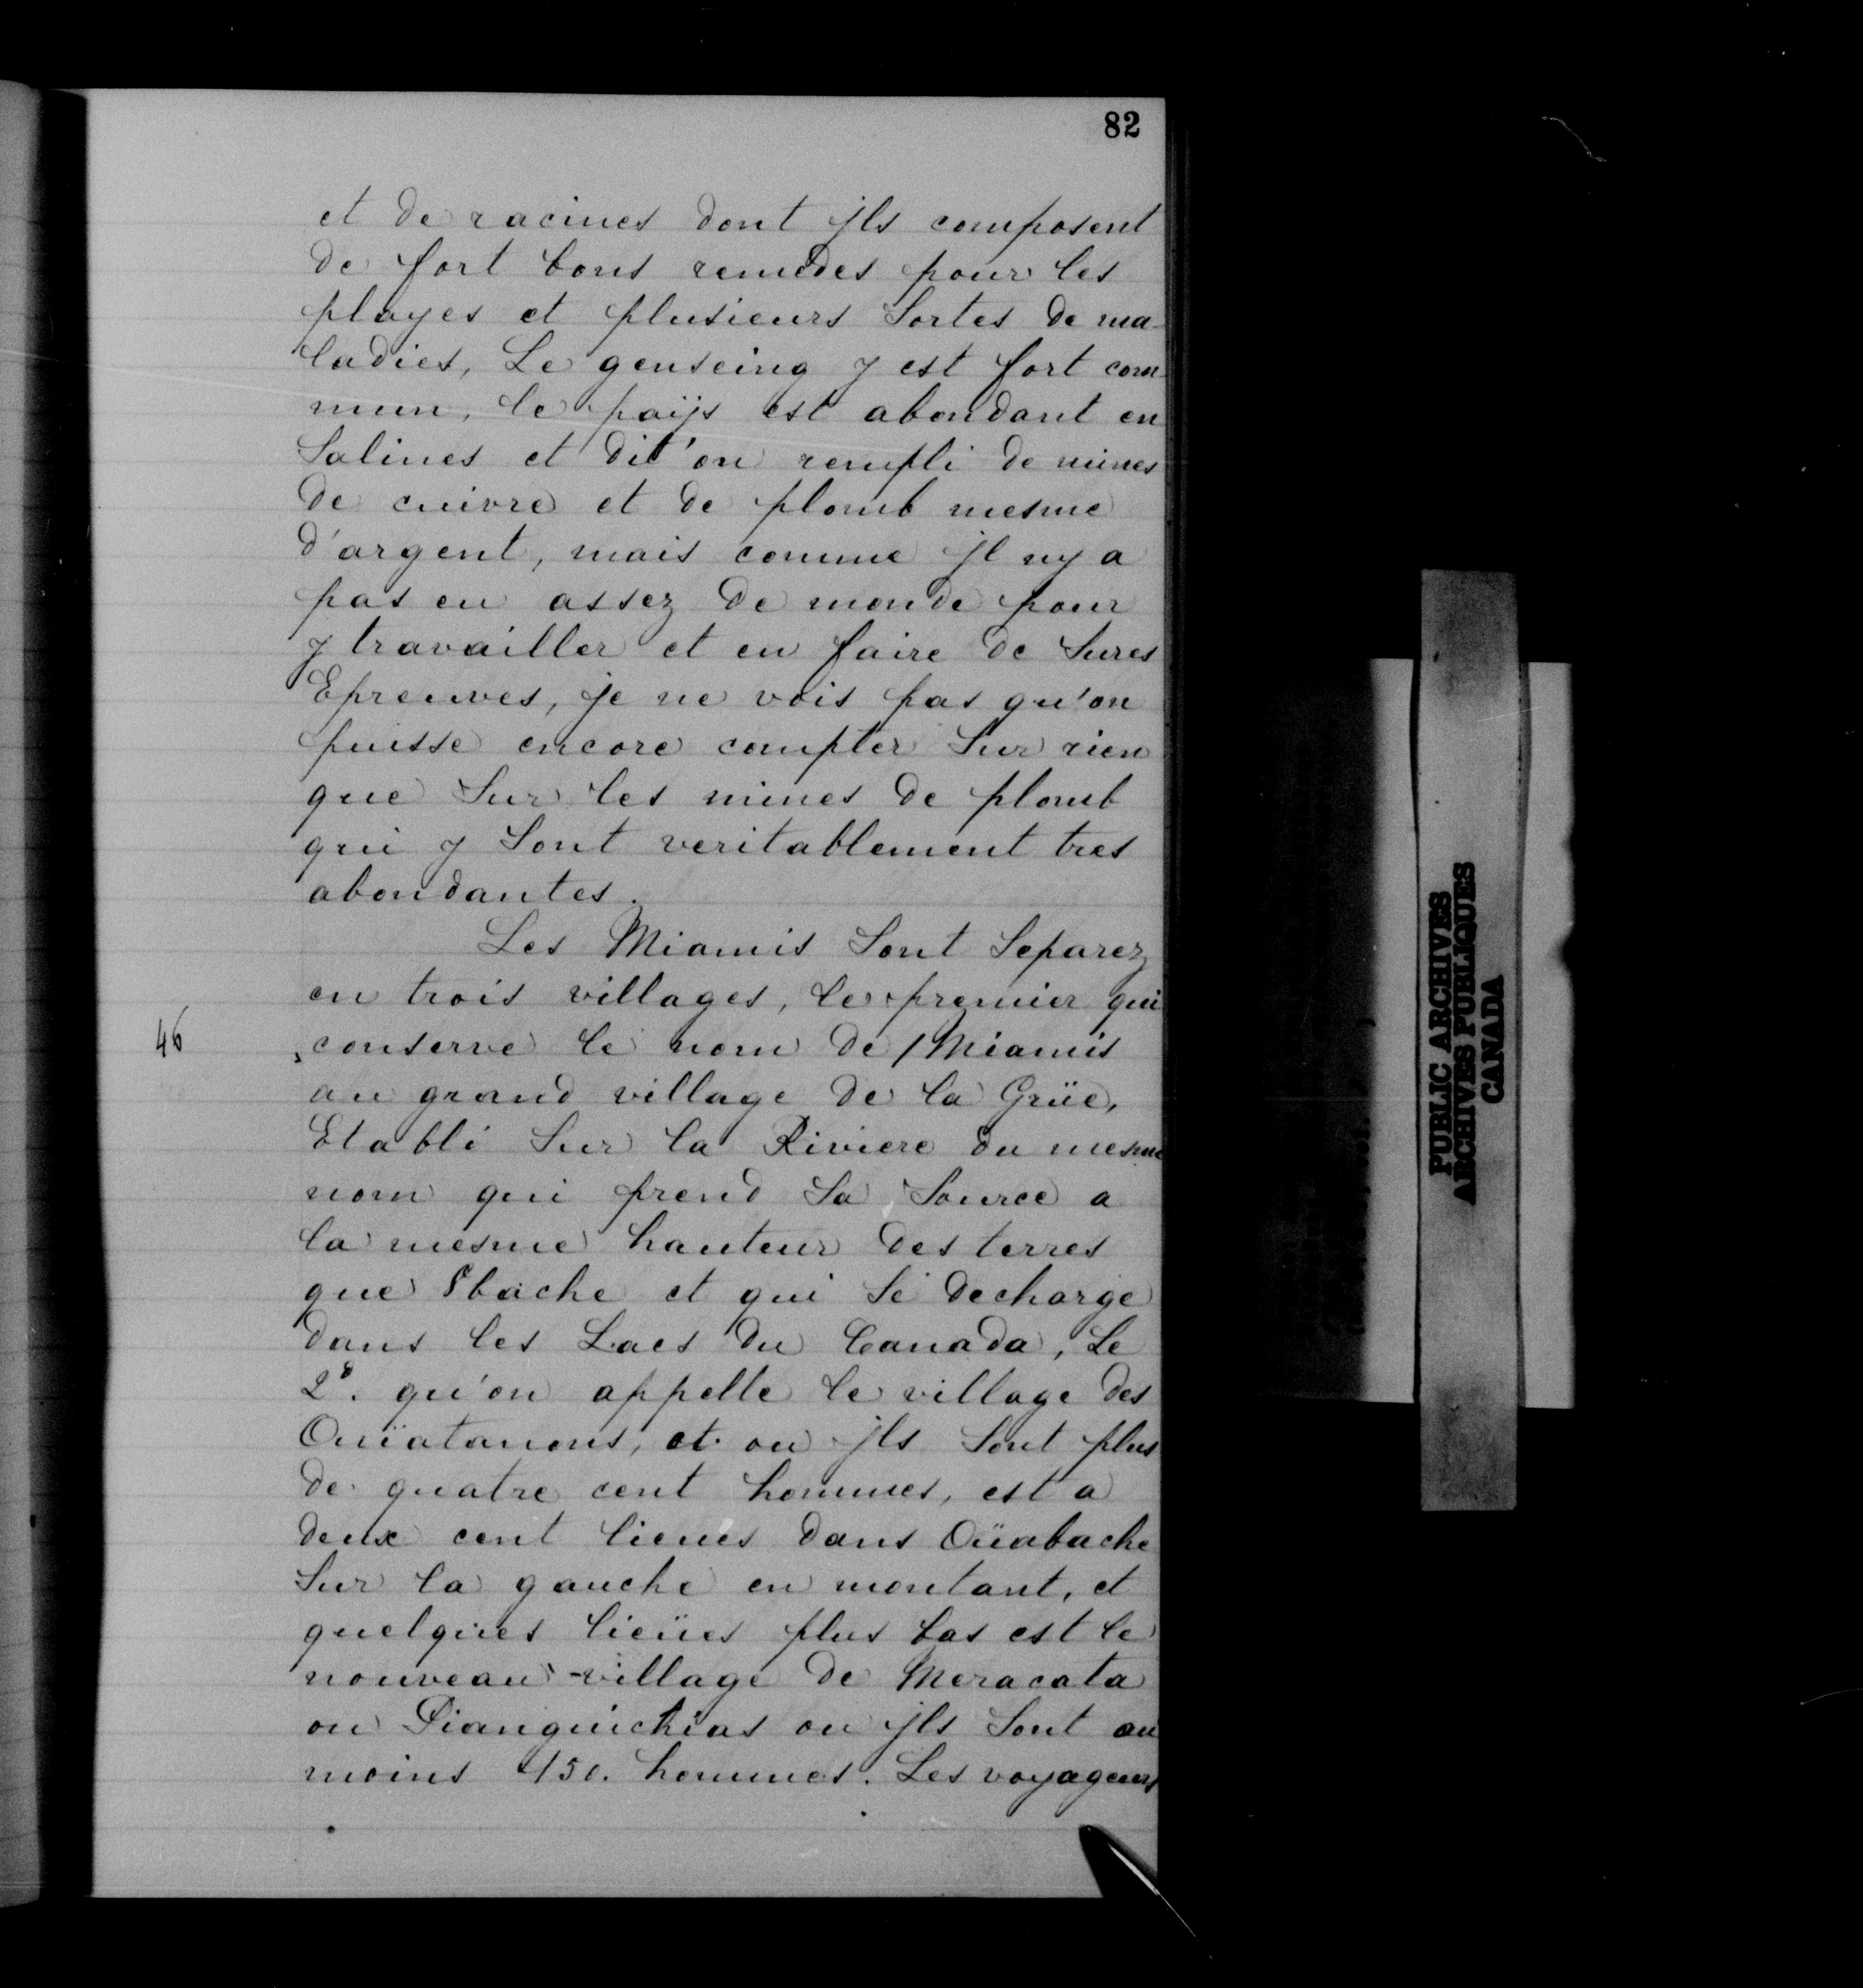 82
et de racines dont jls composent
de fort bons remedes pour les
playes et plusieurs Sortes de ma-
ladies, Le genseing y est fort com-
mun, le païjs est abondant en
Salines et dit'on rempli de mines
de cuivre et de plomb mesme
d'argent, mais comme jl ny a
pas eu assez de monde pour
y travailler et en faire de Sures
Epreuves, je ne vois pas qu'on
puisse encore compter Sur rien
que Sur les mines de plomb
qui y Sont veritablement tres
abondantes.
Les Miamis Sont Separez
en trois villages, le premier qui
46 conserve le nom de / Miamis
au grand village de la Grüe,
Etabli Sur la Riviere du mesme
nom qui prend Sa Source a
la mesme hauteur des terres
que 8bache et qui Se decharge
dans les Lacs du Canada, Le
2e. qu'on appelle le village des
Ouïatanons, et ou jls Sont plus
de quatre cent hommes, est a
deux cent lieues dans Oüabache
Sur la gauche en montant, et
quelques lieües plus bas est le
nouveau village de Meracata
ou Pianguichias ou jls Sont au
moins 150. hommes. Les voyageurs
PUBLIC ARCHIVES
ARCHIVES PUBLIQUES
CANADA